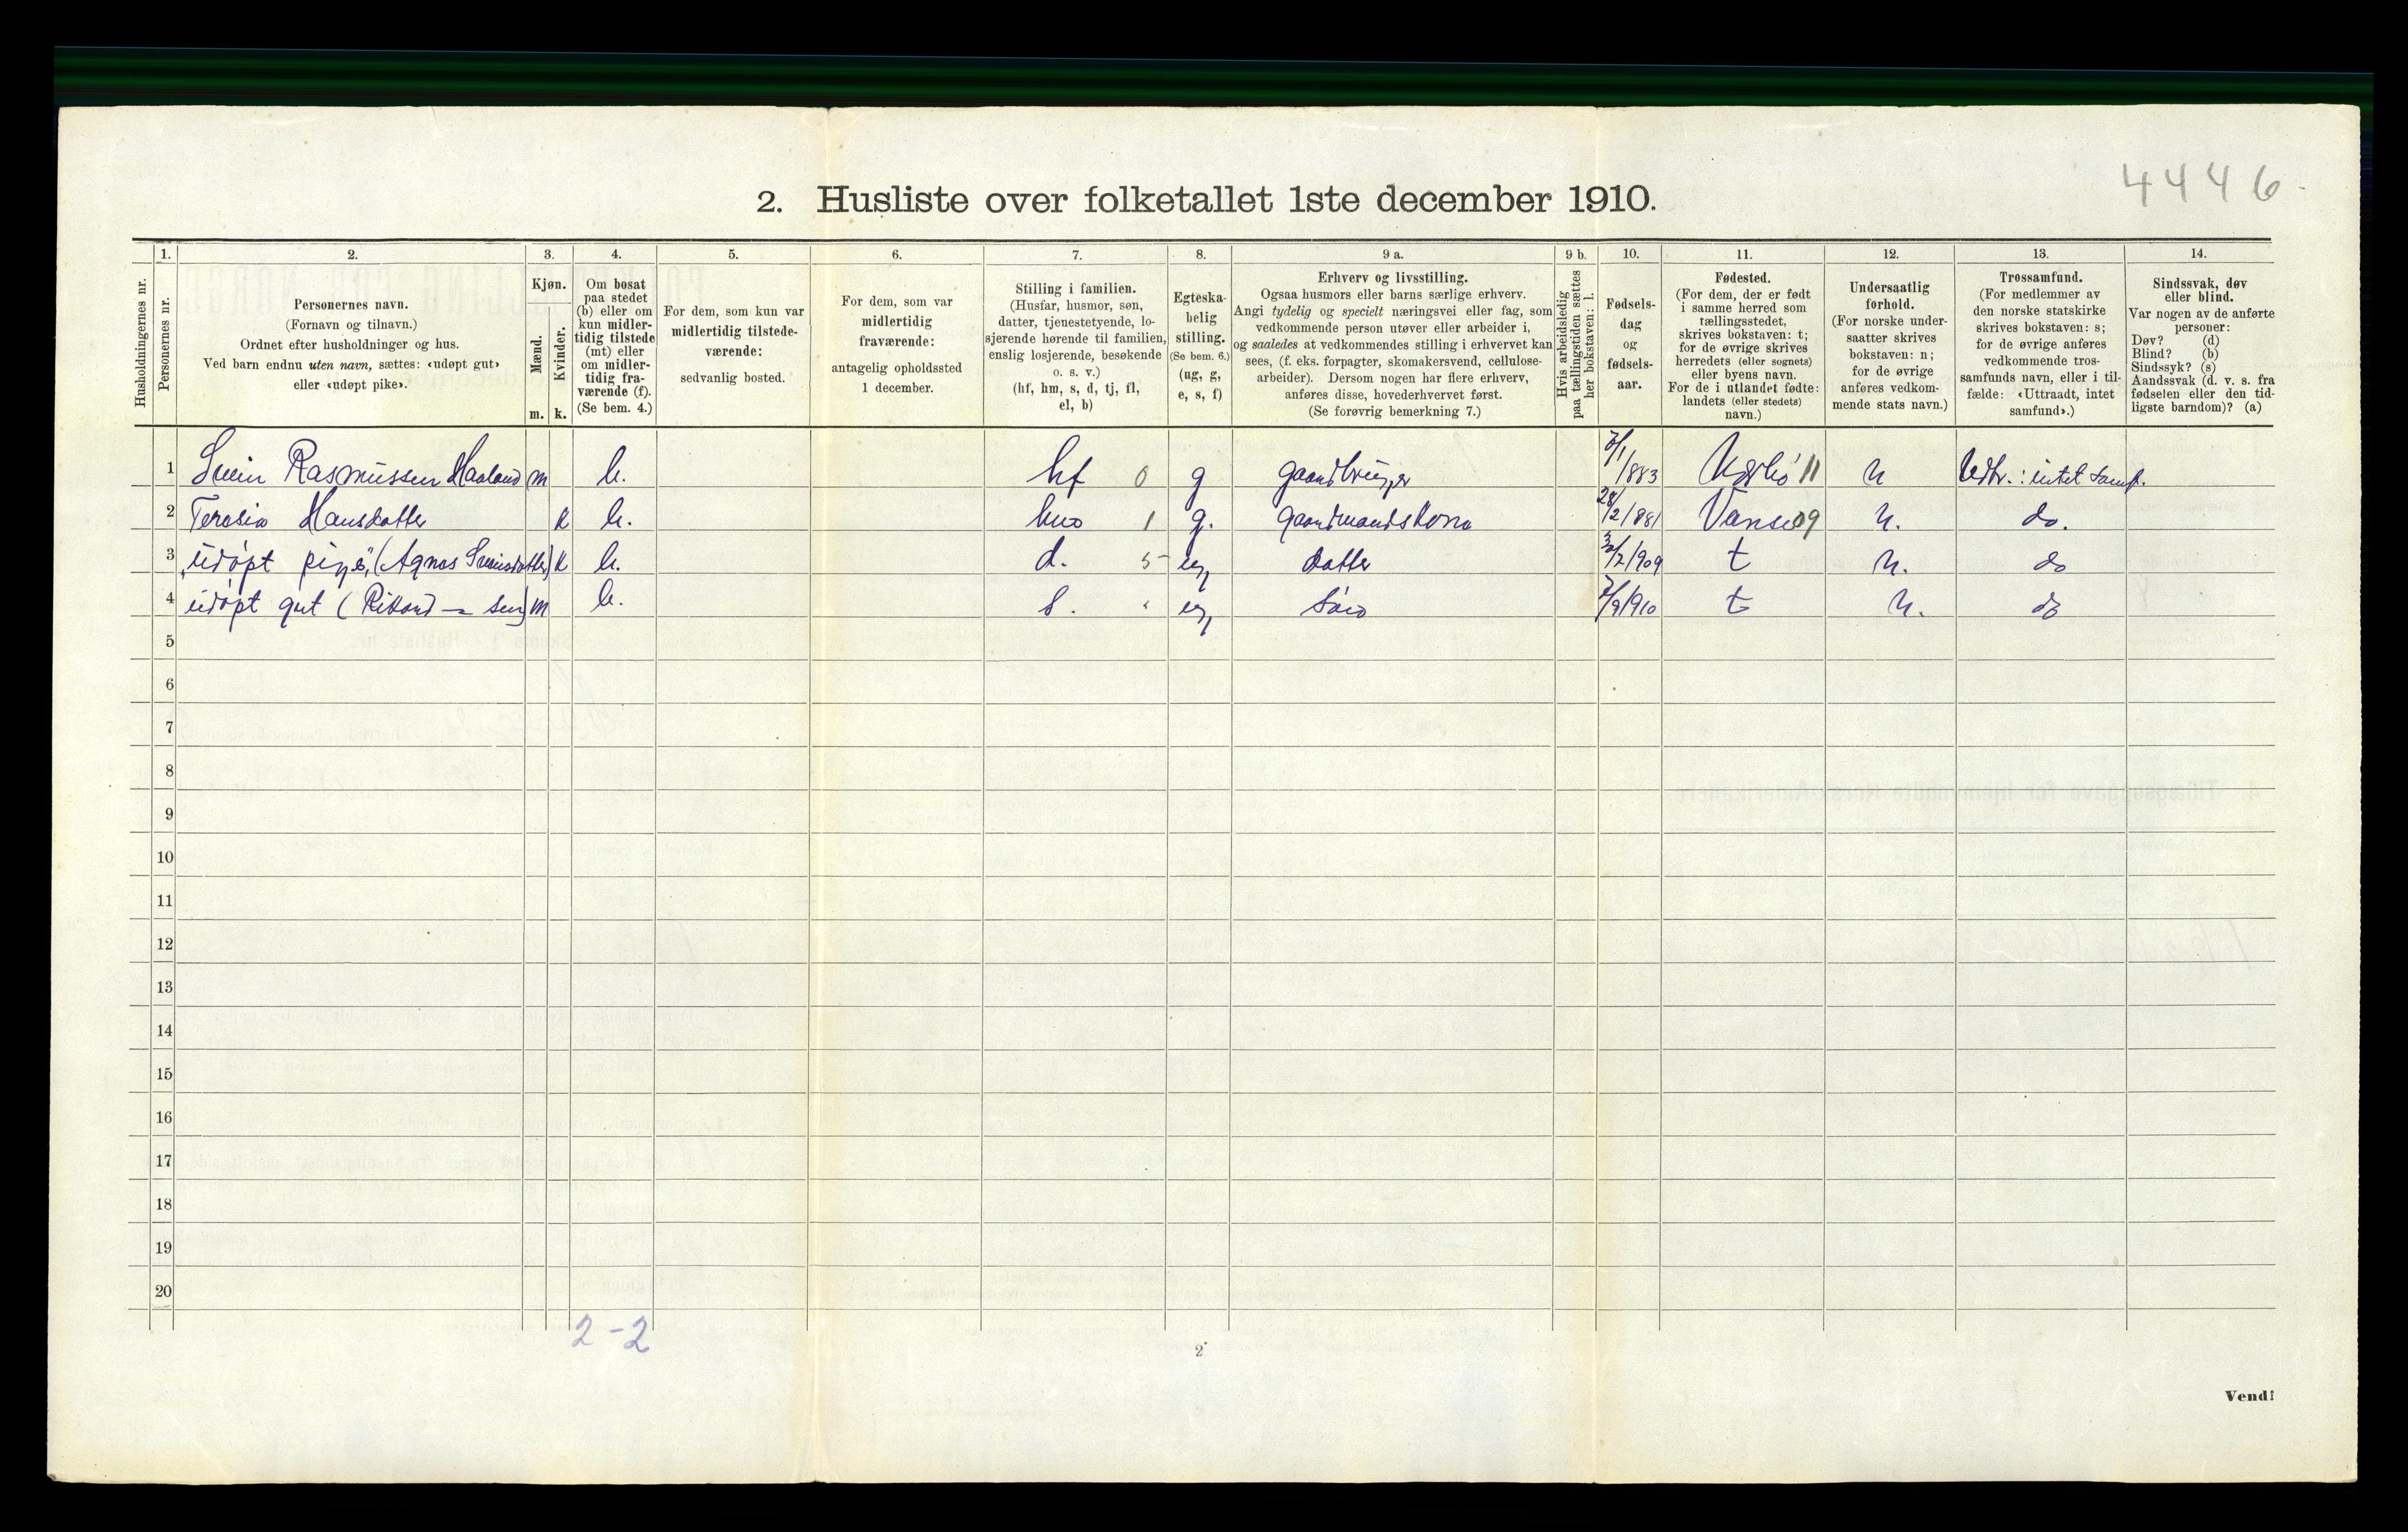 4446.
2. Husliste over folketallet 1ste december 1910.
Husholdningernes nr.
1.
Personernes nr.
2.
Personernes navn.
(Fornavn og tilnavn.)
Ordnet efter husholdninger og hus.
Ved barn endnu uten navn, sættes: «udøpt gut»
eller «udøpt pike».
3.
Kjøn.
Mænd.
Kvinder.
m. k.
4.
Om bosat
paa stedet
(b) eller om
kun midler-
tidig tilstede
(mt) eller
om midler-
tidig fra-
værende (f).
(Se bem. 4.)
5.
For dem, som kun var
midlertidig tilstede-
værende:
sedvanlig bosted.
6.
For dem, som var
midlertidig
fraværende:
antagelig opholdssted
1 december.
7.
Stilling i familien.
(Husfar, husmor, søn,
datter, tjenestetyende, lo-
sjerende hørende til familien,
enslig losjerende, besøkende
o. s. v.)
(hf, hm, s, d, tj, fl,
el, b)
8.
Egteska-
belig
stilling.
(Se bem. 6.)
(ug, g,
e, s, f)
9 a.
Erhverv og livsstilling.
Ogsaa husmors eller barns særlige erhverv.
Angi tydelig og specielt næringsvei eller fag, som
vedkommende person utøver eller arbeider i,
og saaledes at vedkommendes stilling i erhvervet kan
sees, (f. eks. forpagter, skomakersvend, cellulose-
arbeider). Dersom nogen har flere erhverv,
anføres disse, hovederhvervet først.
(Se forøvrig bemerkning 7.)
9 b.
Hvis arbeidsledig
paa tællingstiden sættes
her bokstaven: l.
10.
Fødsels-
dag
og
fødsels-
aar.
11.
Fødested.
(For dem, der er født
i samme herred som
tællingsstedet,
skrives bokstaven: t;
for de øvrige skrives
herredets (eller sognets)
eller byens navn.
For de i utlandet fødte:
landets (eller stedets)
navn.)
12.
Undersaatlig
forhold.
(For norske under-
saatter skrives
bokstaven: n;
for de øvrige
anføres vedkom-
mende stats navn.)
13.
Trossamfund.
(For medlemmer av
den norske statskirke
skrives bokstaven: s;
for de øvrige anføres
vedkommende tros-
samfunds navn, eller i til-
fælde: «Uttraadt, intet
samfund».)
14.
Sindssvak, døv
eller blind.
Var nogen av de anførte
personer:
Døv? (d)
Blind? (b)
Sindssyk? (s)
Aandssvak (d. v. s. fra
fødselen eller den tid-
ligste barndom)? (a)
1 Svein Rasmussen Haaland m b. hf 0 g gaardbruger /1 1883 11 n Udtr.: intet samf.
2 Terasia Hansdatter k b. 1 g. gaardmandskona 28/2 1881 Vanse 09 n. do.
3 udøpt pige, (Agnes Sveinsdatter) k b. d. 5 ug datter /2/909 t n. do
4 udøpt gut ( — sen) m b. s. ug søn /9/910 t n. do
5
6
7
8
9
10
11
12
13
14
15
16
17
18
19
20
2-2
2
Vend!